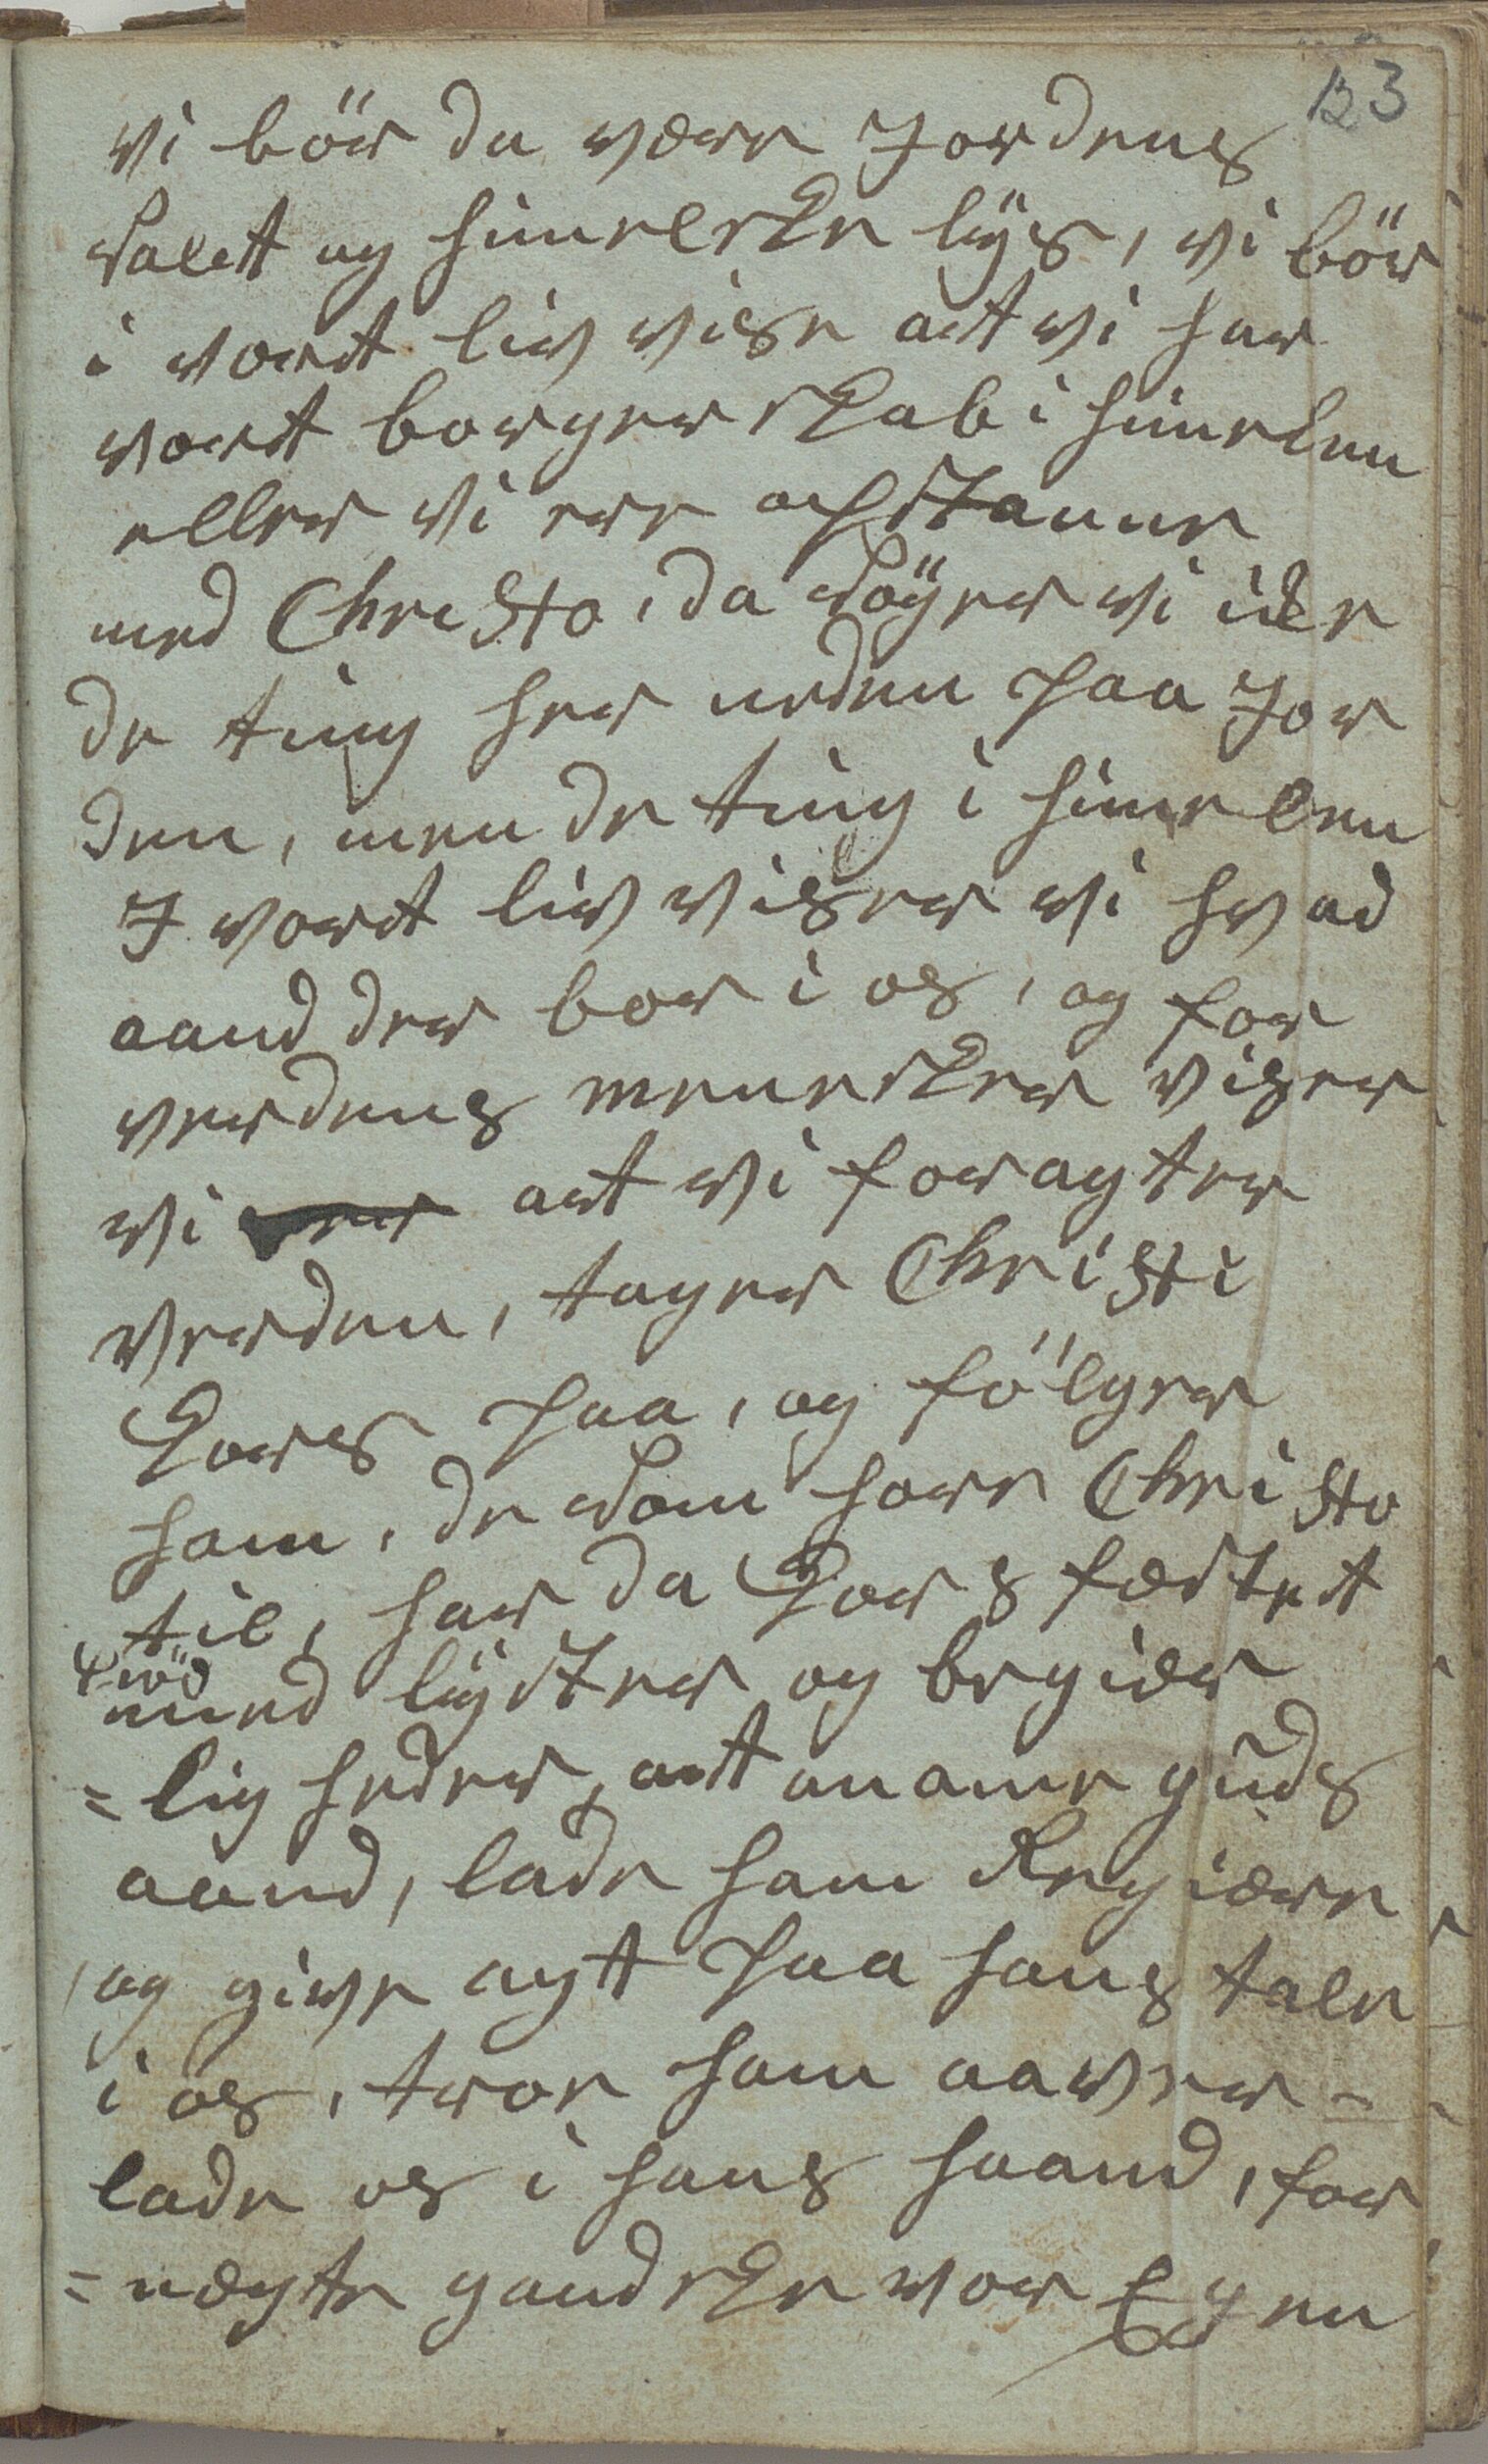 123
Vi bör da være Jordens
salt og himelske lÿs, vi bör
i vort liv vise at vi har
vort borgerskab i himelen
eller vi ere opstanne
med Christo, da söger vi icke
de ting her neden paa Jor
den, men de ting i himelen
I vort liv viser vi hvad
aand der bor i os, og for
verdens menesker viser
vi at vi foragter
verden, tager Christi
Kors paa, og fölger
ham, de som hore Christo
til, har da Korsfæstet
kiöd
med lÿster og begiær
=ligheder, at aname guds
aand, lade ham Regiære
og give agt paa hans tale
i os, troe ham over=
lade os i hans haand, for
=nægte gandske vor Egen